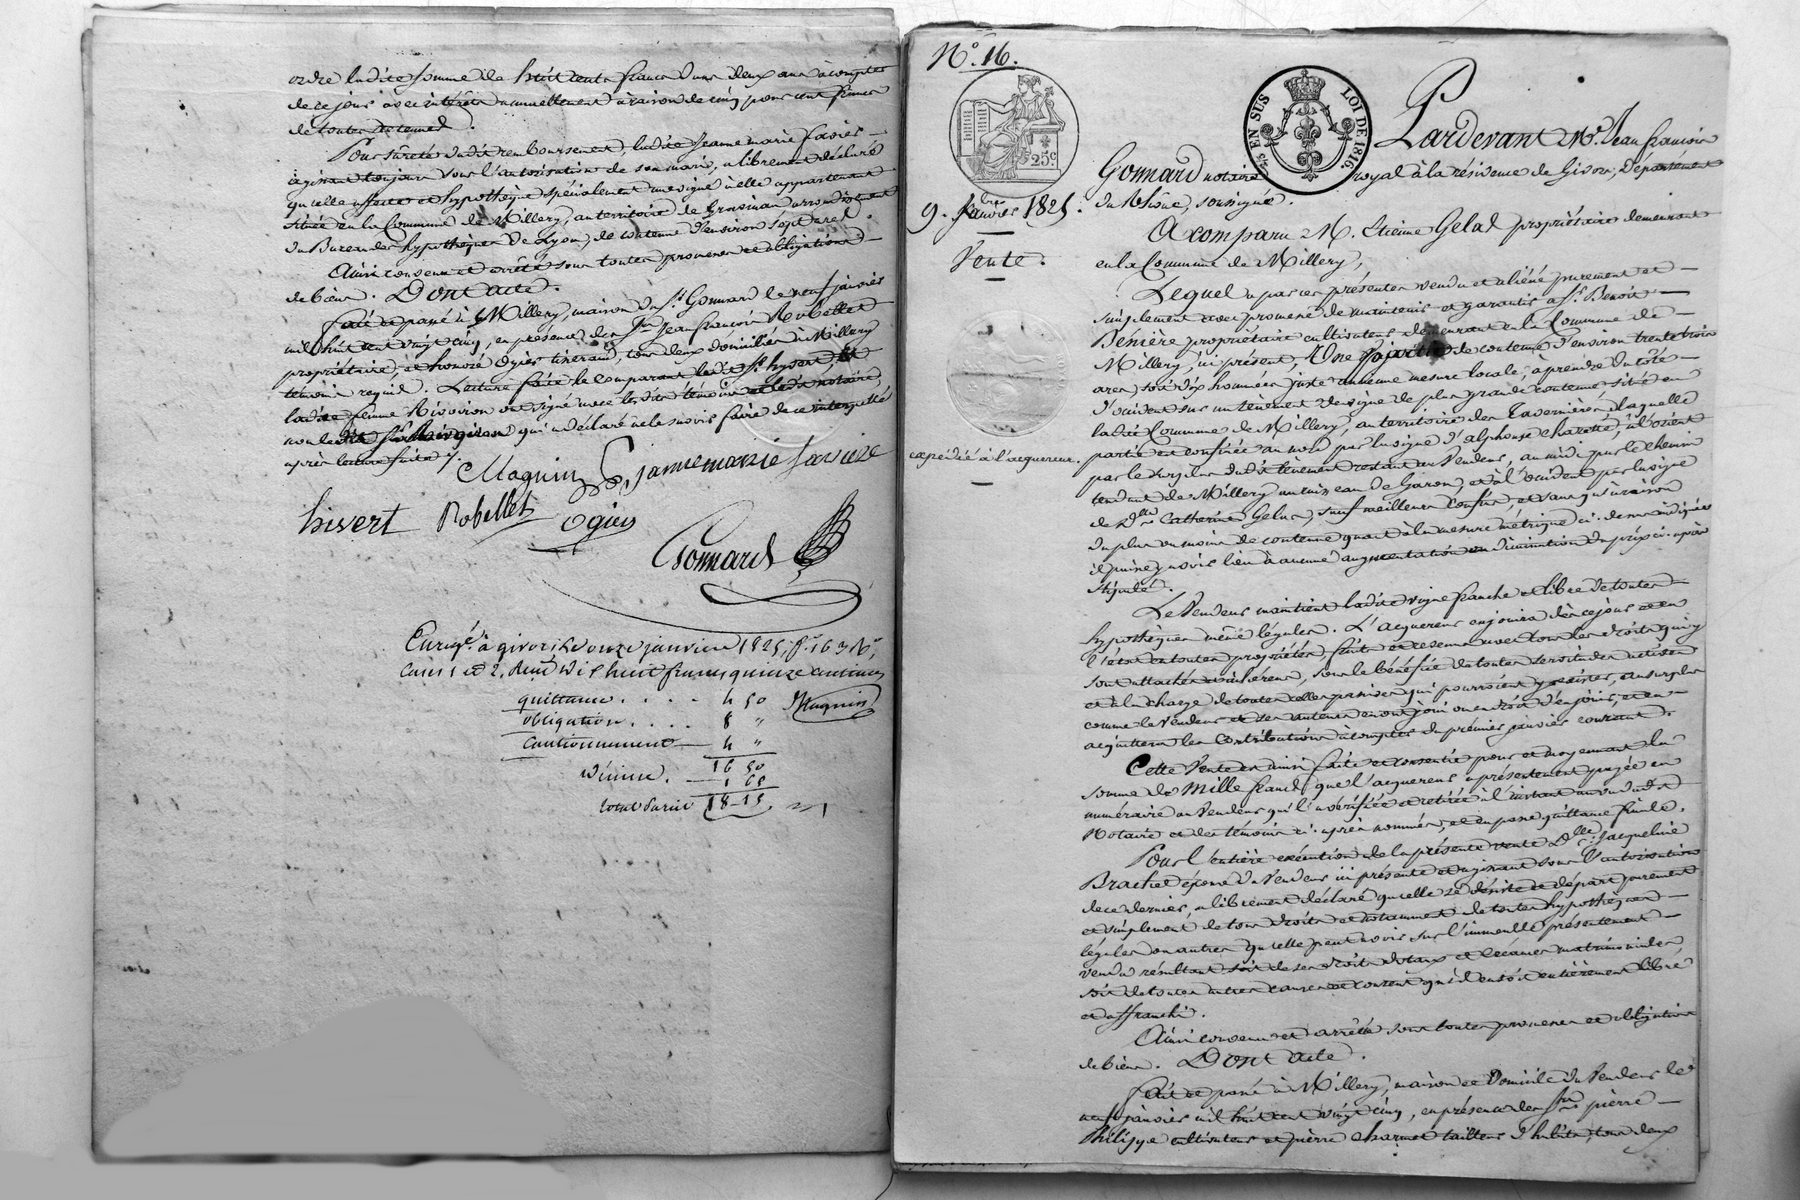 ordre ladite somme de huit cents francs dans deux ans à compter
de ce jour avec intérêts annuellement à raison de cinq pour cent francs
de toutes retenues.
Pour sûreté dudit remboursement, ladite Jeanne marie favier
agissant toujours sous l'autorisation de son mari, a librement déclaré
qu'elle affecte et hypothèque spécialement une vigne à elle appartenant
située en la Commune de Millery, au territoire de arrondissement
du Bureau des hypothèques de Lyon, de contenue d'environ sept ares.
Ainsi convenu et arrêté sous toutes promesses et obligations
de biens. Dont acte.
fait et passé à Millery, maison du Sr. Gonnard le neuf janvier
mil huit cent vingt cinq, en présence des Srs Jean françois Robellet
propriétaire, et honoré Ogier tisserand, tous deux domiciliés à Millery
témoins requis. Lecture faite le comparant ledit Sr. hyvert, et
ladite femme ont signé avec lesdits témoins et ledit notaire,
non ledit qui a déclaré ne le savoir faire de ce interpellé
après lecture faite /.
Magnin jeanne marie favier
hivert Robellet ogier
Gonnard
Enregé. à givors, le onze janvier 1825, fo. 163 Vo,
cases 1 et 2. Reçu dix huit francs quinze centimes
quittance . . . . 4 50 Magnin
obligation . . . . 8 "
cautionnement — 4 "
16 50
décime. — 1 65
total 18-15.
No. 16.
25 c
25 EN SUS LOI DE 1816.
Pardevant Me. Jean françois
Gonnard notaire royal à la résidence de Givors, Département
du Rhône, soussigné.
9. Janvier 1825.
Vente.
A comparu M. Etienne Gelas propriétaire demeurant
en la Commune de Millery,
Lequel a par ces présentes vendu et aliéné purement et
simplement avec promesse de maintenir et garantir à Sr. Benoit
Bénière propriétaire cultivateur demeurant en la Commune de
Millery, ici présent, Une partie de contenue d'environ trente trois
ares, soit dix hommées juste ancienne mesure locale, à prendre du côté
d'occident sur un tènement de vigne de plus grande contenue située en
ladite Commune de Millery, au territoire des tavernières, laquelle
partie est confinée au nord par la vigne d'alphonse à l'orient
par le surplus dudit tènement restant au Vendeur, au midi par le chemin
tendant de Millery au ruisseau de Garon, et à l'occident par la vigne
de Dlle Catherine Gelas, sauf meilleurs confins, et sans qu'à raison
du plus ou moins de contenue quant à la mesure métrique ci-dessus indiquée
il puisse y avoir lieu à aucune augmentation ou diminution du prix ci-après
stipulé.
expédié à l'acquéreur.
Le Vendeur maintient ladite vigne franche et libre de toutes
hypothèques même légales. L'acquéreur en jouira dès ce jour et en
l'état en toutes propriétés, fruits et récoltes avec tous les droits qui y
sont attachés et inhérens, sous le bénéfice de toutes servitudes actives
et à la charge de toutes celles passives qui pourroient y exister, au surplus
comme le Vendeur et ses auteurs en ont joui ou eu droit d'en jouir, et en
acquittera les Contributions à compter du premier janvier courant.
Cette Vente est ainsi faite et consentie pour et moyennant la
somme de Mille francs que l'acquéreur a présentement payée en
numéraire au Vendeur qui l'a vérifiée et retirée à l'instant au vu dudit
Notaire et des témoins ci-après nommés, et en passe quittance finale.
Pour l'entière exécution de la présente vente Dlle Jacqueline
Brachet épouse du Vendeur ici présente et agissant sous l'autorisation
de ce dernier, a librement déclaré qu'elle se désiste et départ purement
et simplement de tous droits et notamment de toutes hypothèques
légales ou autres qu'elle peut avoir sur l'immeuble présentement
vendu résultant soit de ses droits dotaux et créances matrimoniales,
soit de toutes autres causes et consent qu'il en soit entièrement libre
et affranchi.
Ainsi convenu et arrêté sous toutes promesses et obligations
de biens. Dont acte.
fait et passé à Millery, maison et Domicile du Vendeur le
neuf janvier mil huit cent vingt cinq, en présence des Srs pierre
Philippe cultivateur et pierre charmet tailleur d'habits, tous deux